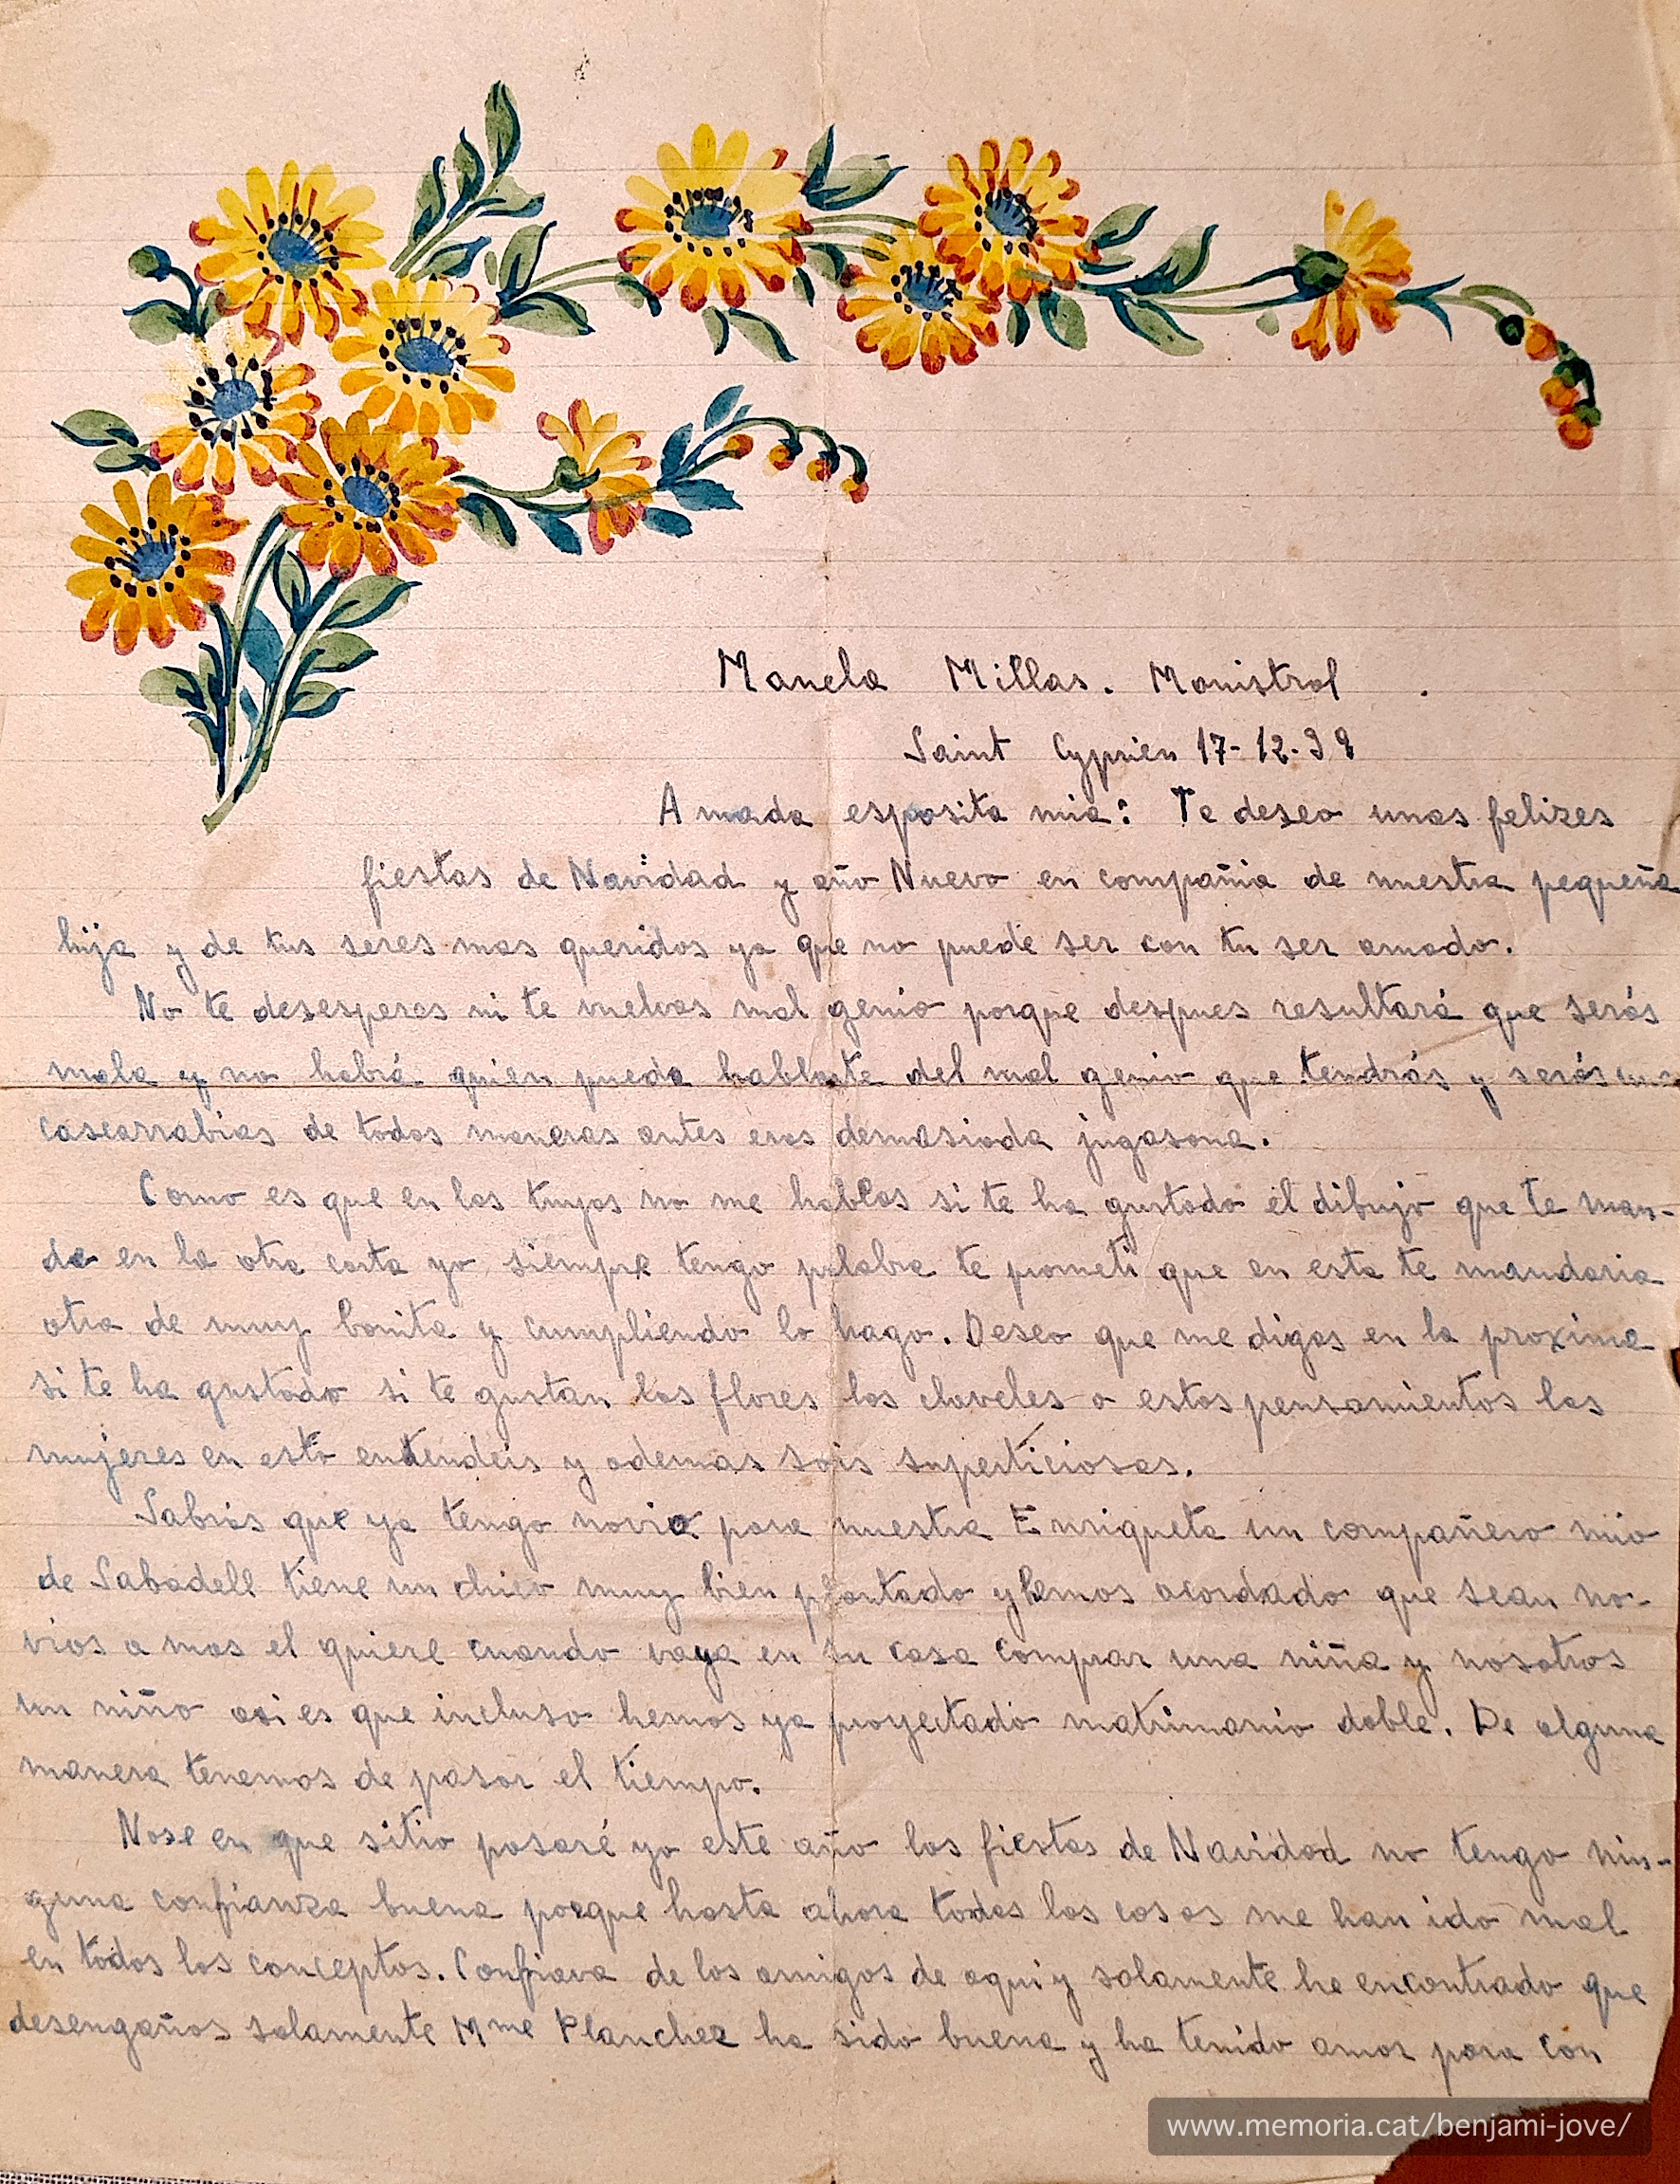 Manela Millas. Monistrol.
Saint Cyprien 17-12-39
Amada esposita mia: Te deseo unas felizes
fiestas de Navidad y año Nuevo en compañia de nuestra pequeña
hija y de tus seres mas queridos ya que no puede ser con tu ser amado.
No te desesperes ni te vuelvas mal genio porque despues resultará que serás
mala y no habrá quien pueda hablarte del mal genio que tendrás y serás
cascarrabias de todas maneras antes eras demasiada jugasona.
Como es que en las tuyas no me hablas si te ha gustado el dibujo que te man-
de en la otra carta yo siempre tengo palabra te prometi que en esta te mandaria
otra de muy bonita y cumpliendo lo hago. Deseo que me digas en la proxima
si te ha gustado si te gustan las flores los claveles o estos pensamientos las
mujeres en esto entendeis y ademas sois superticiosas.
Sabrás que ya tengo novio para nuestra Enriqueta un compañero mio
de Sabadell tiene un chico muy bien plantado y hemos acordado que sean no-
vios a mas el quiere cuando vaya en su casa comprar una niña y nosotros
un niño asi es que incluso hemos ya proyectado matrimonio doble. De alguna
manera tenemos de pasar el tiempo.
Nose en que sitio pasaré yo este año las fiestas de Navidad no tengo nin-
guna confianza buena porque hasta ahora todas las cosas me han ido mal
en todos los conceptos. Confiava de los amigos de aqui y solamente he encontrado que
desengaños solamente Mme Planchez ha sido buena y ha tenido amor para con
www.memoria.cat/benjami-jove/